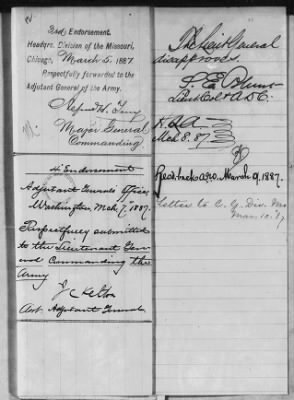 2nd Endorsement.
Headqrs. Division of the Missouri,
Chicago, March 5, 1887
Respectfully forwarded to the
Adjutant General of the Army.
Alfred H. Terry
Major General
Commanding.
Endorsement
Adjutant Generals Office,
Washington, Mch. 7, 1887.
Respectfully submitted
to the Lieutenant Gen-
eral Commanding the
Army
J C Kelton
Asst. Adjutant General.
The Lieut General
disapproves.
S. E. Blunt
A.D.C.
Mch 8. 87
Rec'd back AGO. March 9, 1887.
Letter to C. G. Div. Mo
Mar. 10. 87